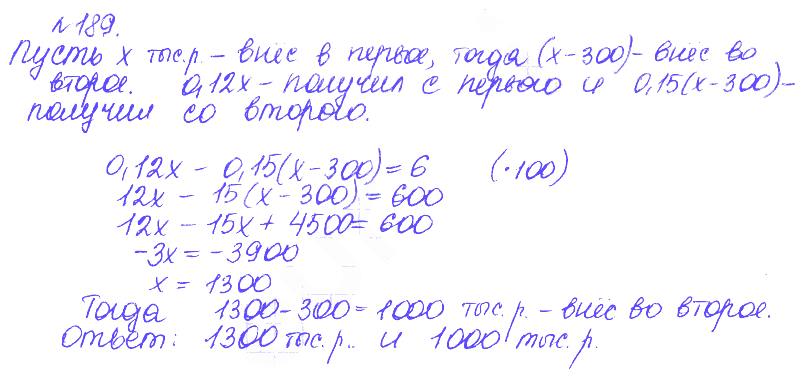 №189.
Пусть х тыс.р. – внёс в первое, тогда (х-300) – внёс во
второе. 0,12х – получил с первого и 0,15(х-300) –
получил со второго.
0,12х – 0,15(х-300) = 6 (·100)
12х – 15(х-300) = 600
12х – 15х + 4500 = 600
-3х = -3900
х = 1300
Тогда 1300-300=1000 тыс.р. – внёс во второе.
Ответ: 1300 тыс.р.. и 1000 тыс.р.